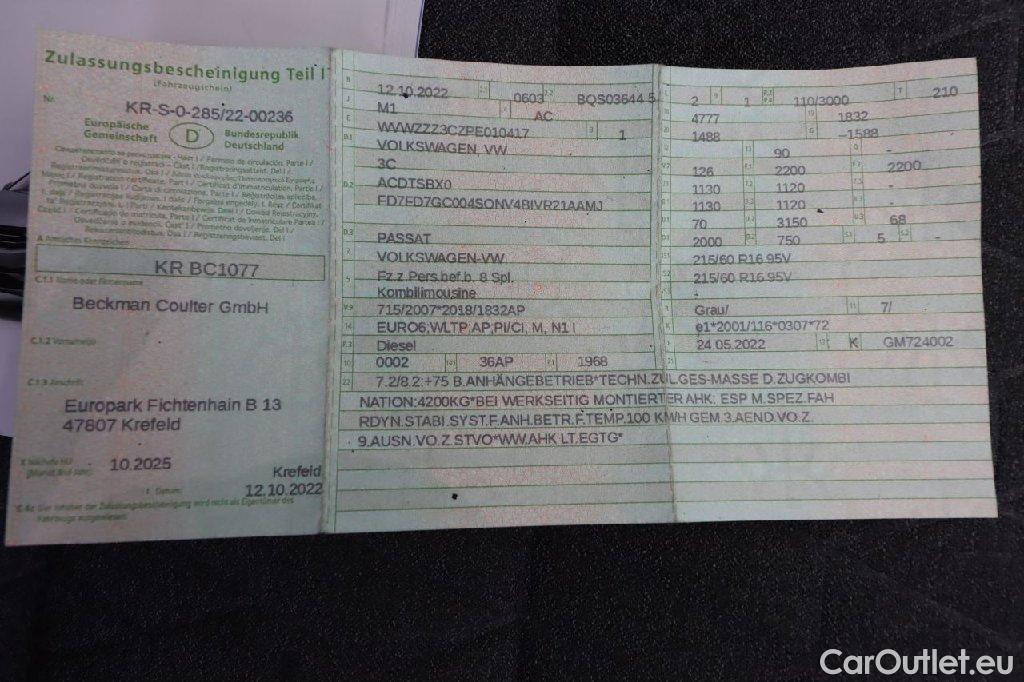 Zulassungsbescheinigung Teil I
(Fahrzeugschein)
Nr. KR-S-0-285/22-00236
Europäische Gemeinschaft D Bundesrepublik Deutschland
A Amtliches Kennzeichen
KR BC1077
C.1.1 Name oder Firmenname
Beckman Coulter GmbH
C.1.2 Vorname(n)
C.1.3 Anschrift
Europark Fichtenhain B 13
47807 Krefeld
10.2025
Krefeld
I Datum: 12.10.2022
C.4c Der Inhaber der Zulassungsbescheinigung wird nicht als Eigentümer des
Fahrzeugs ausgewiesen.
B 12.10.2022 0603 BQS03644 5
J M1 AC
E WVWZZZ3CZPE010417 3 1
D.1 VOLKSWAGEN, VW
3C
D.2 ACDTSBX0
FD7FD7GC004SONV4BIVR21AAMJ
D.3 PASSAT
2 VOLKSWAGEN-VW
5 Fz.z.Pers.bef.b. 8 Spl.
Kombilimousine
V.9 715/2007*2018/1832AP
14 EURO6;WLTP;AP;PI/CI, M, N1 I
P.3 Diesel
10 0002 36AP P.1 1968
L 2 9 1 P.2 P.4 110/3000 T 210
4777 1832
1488 G -1588
90 -
126 2200 2200
1130 1120 -
1130 1120 -
70 3150 68
2000 750 S.1 5 S.2 -
215/60 R16 95V
215/60 R16 95V
-
R Grau/ 11 7/
K e1*2001/116*0307*72
6 24.05.2022 17 K GM724002
22 7.2/8.2:+75 B.ANHÄNGEBETRIEB*TECHN.ZUL.GES-MASSE D.ZUGKOMBI
NATION:4200KG*BEI WERKSEITIG MONTIERTER AHK: ESP M.SPEZ.FAH
RDYN.STABI.SYST.F.ANH.BETR.F.TEMP.100 KMH GEM.3.AEND.VO.Z.
9.AUSN.VO.Z.STVO*WW.AHK LT.EGTG*
CarOutlet.eu